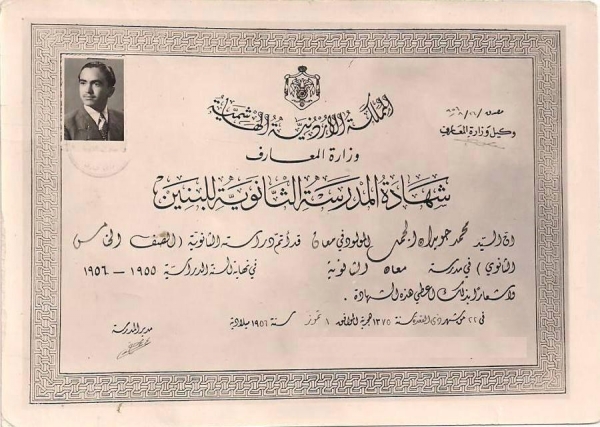 المملكة الأردنية الهاشمية
وكيل وزارة المعارف
وزارة المعارف
شهادة المدرسة الثانوية للبنين
ان السيد محمد جويبران المولود في معان قد أتم دراسته الثانوية (الصف الخامس
الثانوي) في مدرسة معان الثانوية في نهاية السنة الدراسية ١٩٥٥ – ١٩٥٦
واشعارًا بذلك اعطي هذه الشهادة .
في ٢٢ من شهر ذي القعدة سنة ١٣٧٥ هجرية الموافق ١ تموز سنة ١٩٥٦ ميلادية
مدير المدرسة